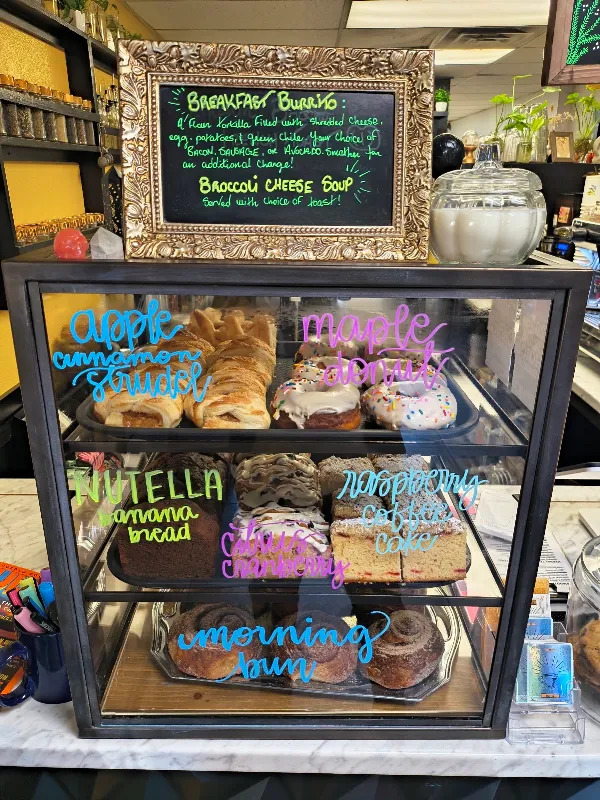 BREAKFAST BURRITO:
Flour tortilla filled with shredded cheese,
egg, potatoes, & green chile. Your choice of
BACON, SAUSAGE, or AVOCADO. Smother for
an additional charge!
BROCCOLI CHEESE SOUP
Served with choice of toast!
apple
cinnamon
strudel
maple
donut
NUTELLA
banana
bread
citrus
cranberry
raspberry
coffee
cake
morning
bun